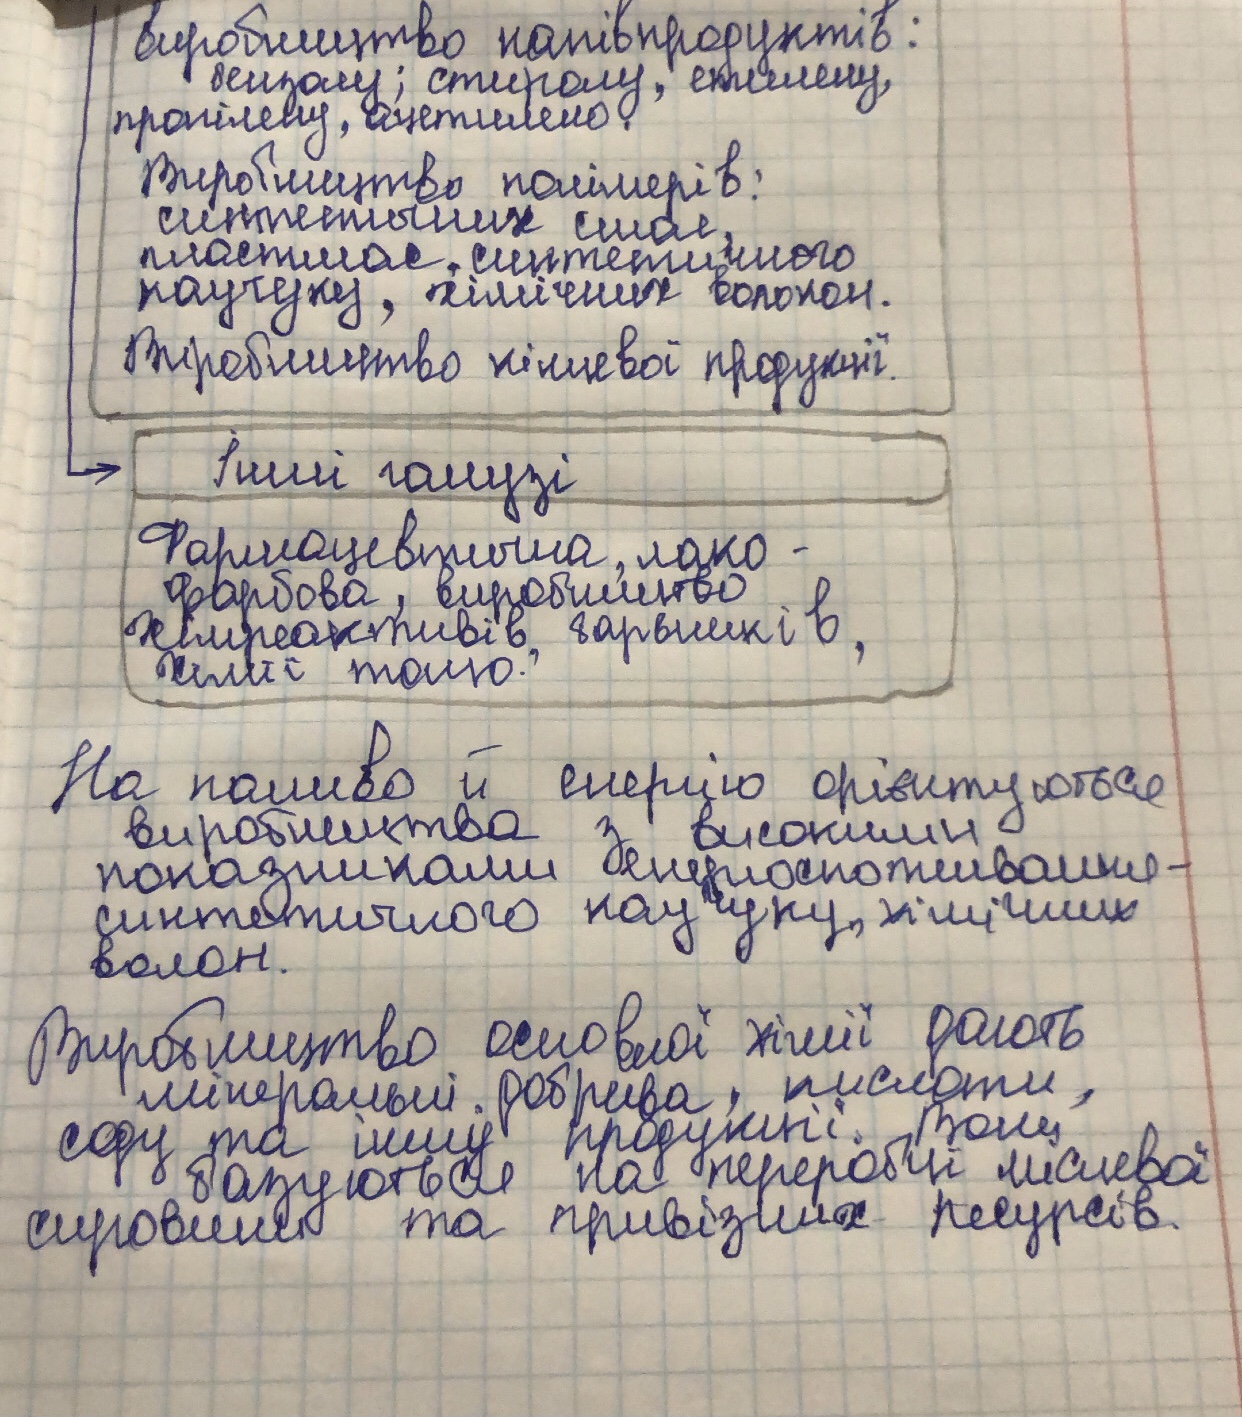 виробництво напівпродуктів:
бензолу; стиролу, етилену,
пропілену, ацетилено.
Виробництво полімерів:
синтетичних смол,
пластмас, синтетичного
каучуку, хімічних волокон.
Виробництво кінцевої продукції.
Інші галузі
Фармацевтична, лако-
фарбова, виробництво
хімреактивів, барвників,
хімії тощо.
На паливо й енергію орієнтуються
виробництва з високими
показниками енергоспоживання-
синтетичного каучуку, хімічних
волон.
Виробництво основної хімії дають
мінеральні добрива, кислоти,
соду та іншу продукції. Вони
базуються на переробці місцевої
сировини та привізних ресурсів.